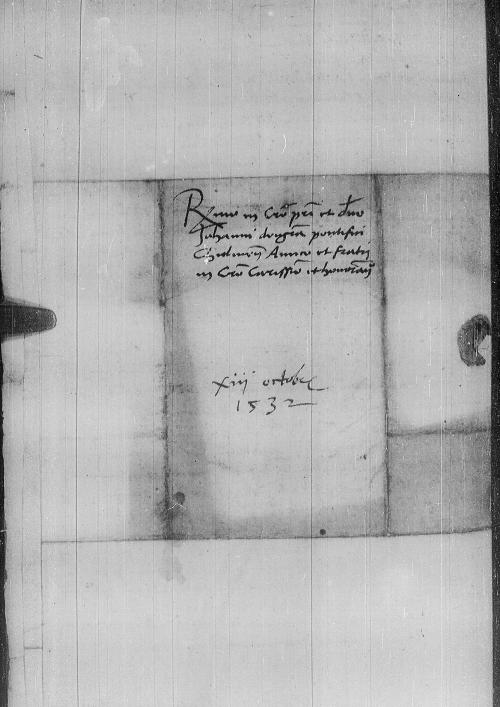 R̃mo in Cro pri et dno
Johanni dei gra pontifici
Culmen Amico et fratri
in Cro Carissimo et honoran
xiij octobr
1532